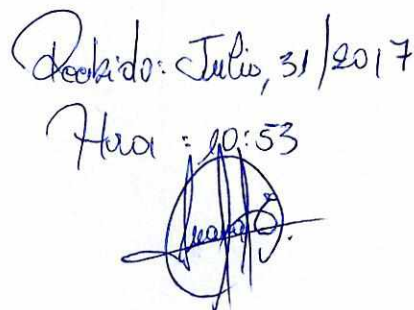 Recibido: Julio, 31/2017
Hora : 10:53